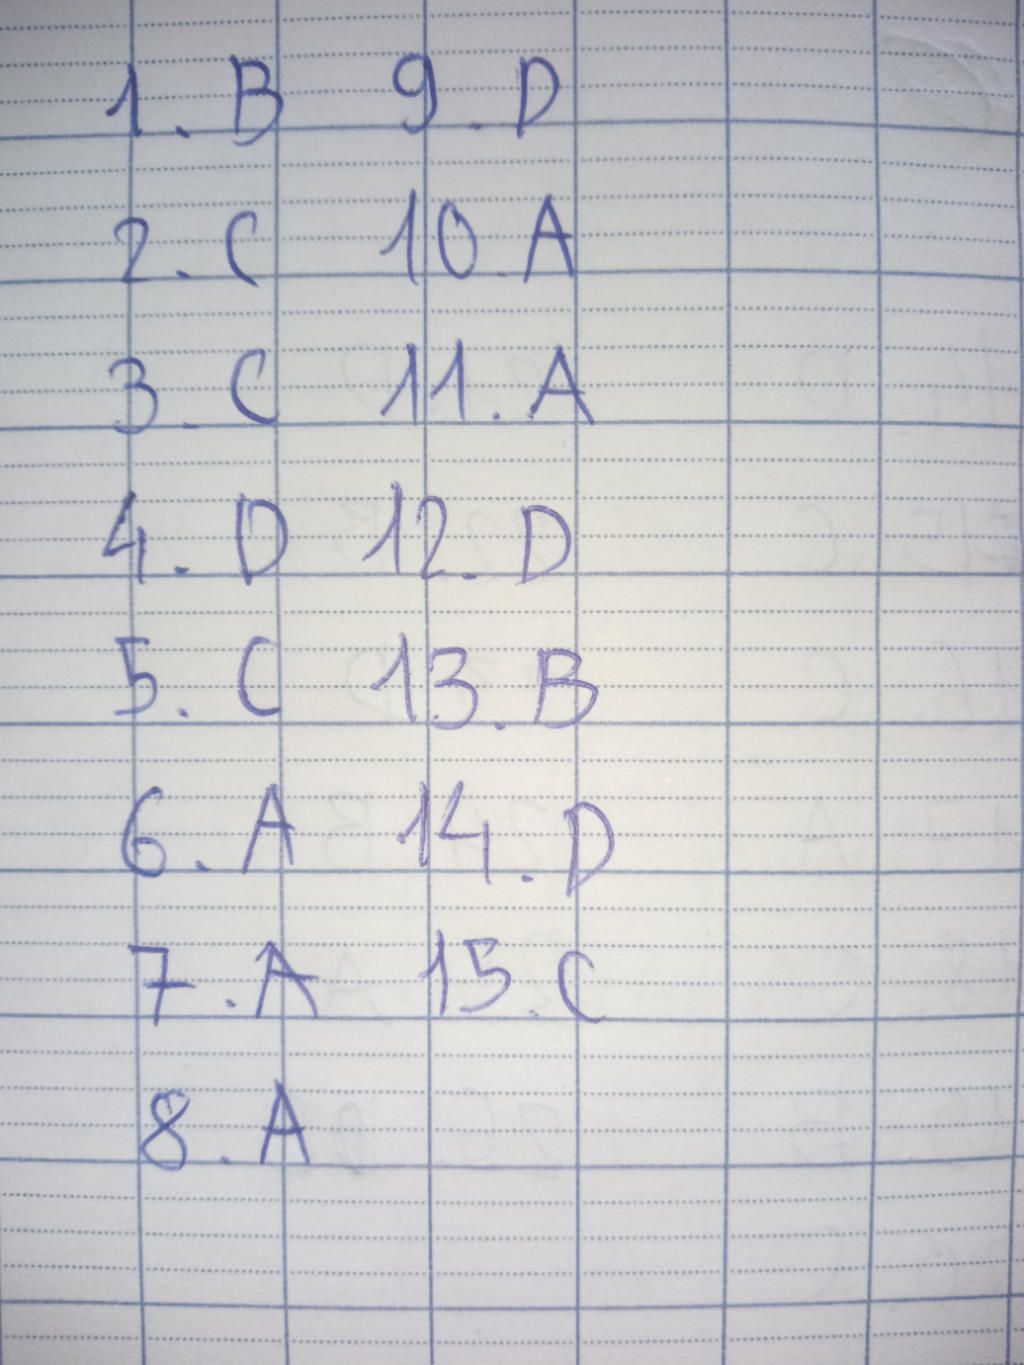 1. B 9. D
2. C 10. A
3. C 11. A
4. D 12. D
5. C 13. B
6. A 14. D
7. A 15. C
8. A